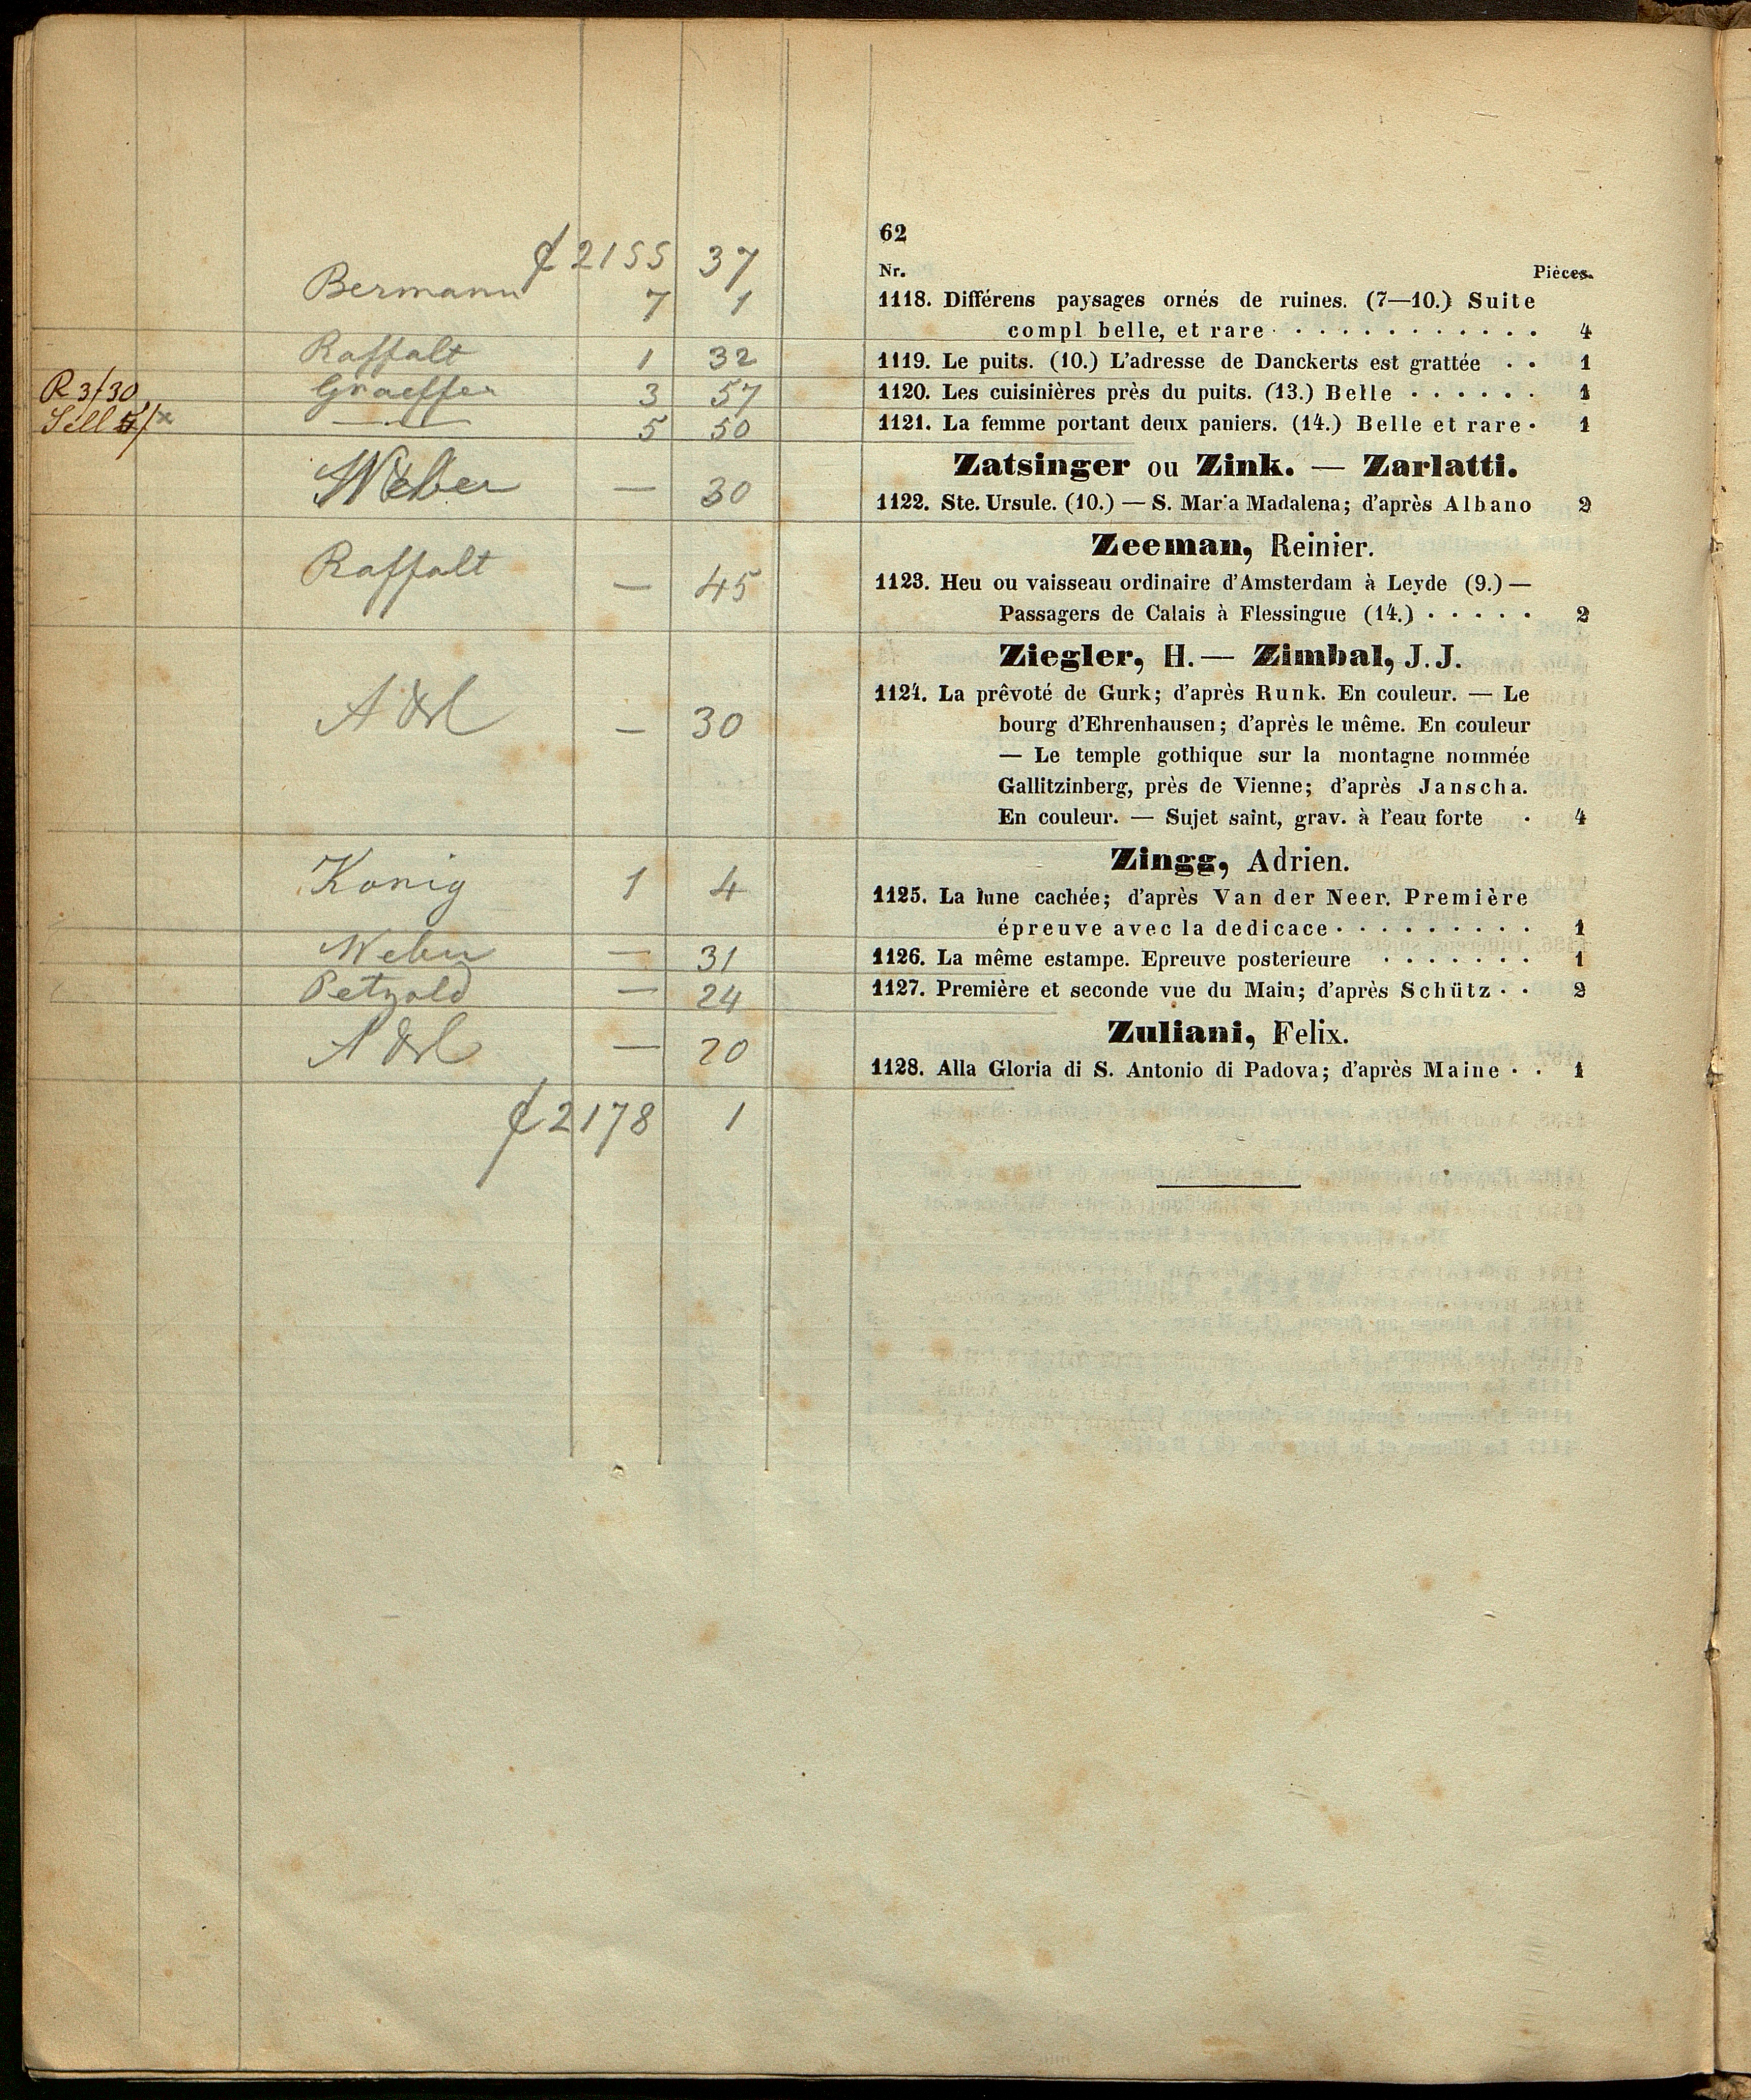 62
₡ 2155 37
Nr. Pièces.
Bermann 7 1
1118. Différens paysages ornés de ruines. (7—10.) Suite
compl belle, et rare · · · · · · · · · · · 4
Raffalt 1 32
1119. Le puits. (10.) L'adresse de Danckerts est grattée · · 1
R 3/30 Graeffer 3 57
1120. Les cuisinières près du puits. (13.) Belle · · · · · · 1
Sell — " — 5 50
1121. La femme portant deux paniers. (14.) Belle et rare · 1
Zatsinger ou Zink. — Zarlatti.
Weber — 30
1122. Ste. Ursule. (10.) — S. Mar'a Madalena; d'après Albano 2
Zeeman, Reinier.
Raffalt — 45
1123. Heu ou vaisseau ordinaire d'Amsterdam à Leyde (9.) —
Passagers de Calais à Flessingue (14.) · · · · · 2
Ziegler, H. — Zimbal, J. J.
— 30
1124. La prêvoté de Gurk; d'après Runk. En couleur. — Le
bourg d'Ehrenhausen; d'après le même. En couleur
— Le temple gothique sur la montagne nommée
Gallitzinberg, près de Vienne; d'après Janscha.
En couleur. — Sujet saint, grav. à l'eau forte · 4
Zingg, Adrien.
Konig 1 4
1125. La lune cachée; d'après Van der Neer. Première
épreuve avec la dedicace · · · · · · · · · 1
Weber — 31
1126. La même estampe. Epreuve posterieure · · · · · · · 1
Petzold — 24
1127. Première et seconde vue du Main; d'après Schütz · · 2
Zuliani, Felix.
— 20
1128. Alla Gloria di S. Antonio di Padova; d'après Maine · · 1
₡ 2178 1